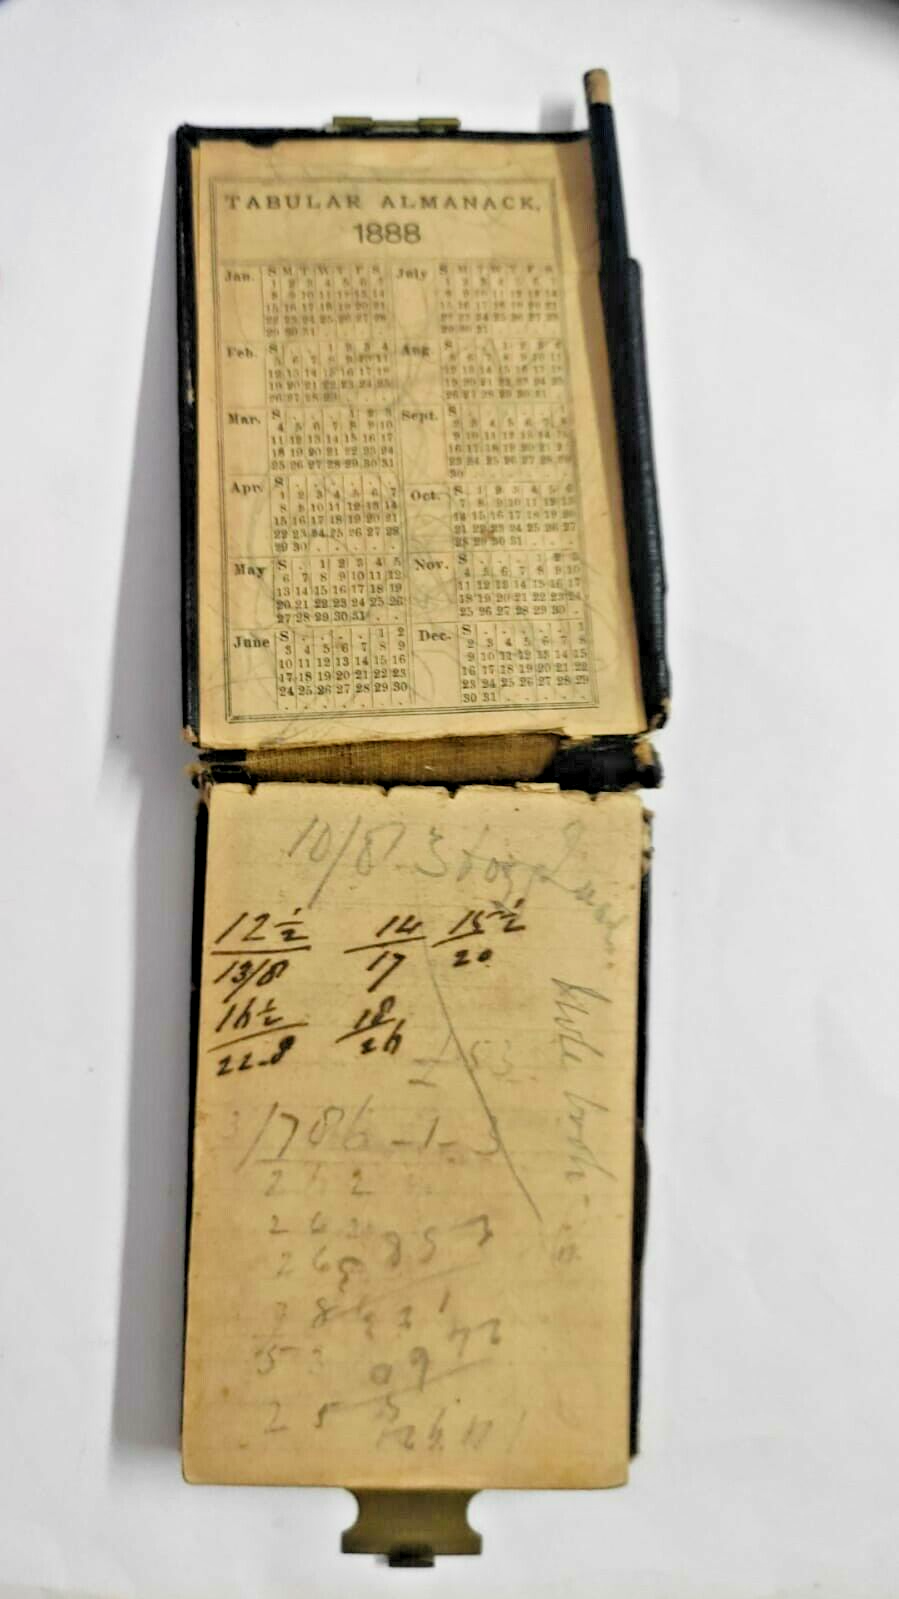 TABULAR ALMANACK,
1888
Jan. S M T W T F S
1 2 3 4 5 6 7
8 9 10 11 12 13 14
15 16 17 18 19 20 21
22 23 24 25 26 27 28
29 30 31
Feb. S . . 1 2 3 4
5 6 7 8 9 10 11
12 13 14 15 16 17 18
19 20 21 22 23 24 25
26 27 28 29 . . .
Mar. S . . . 1 2 3
4 5 6 7 8 9 10
11 12 13 14 15 16 17
18 19 20 21 22 23 24
25 26 27 28 29 30 31
Apr. S . . . . . .
1 2 3 4 5 6 7
8 9 10 11 12 13 14
15 16 17 18 19 20 21
22 23 24 25 26 27 28
29 30 . . . . .
May S . 1 2 3 4 5
6 7 8 9 10 11 12
13 14 15 16 17 18 19
20 21 22 23 24 25 26
27 28 29 30 31 . .
June S . . . . 1 2
3 4 5 6 7 8 9
10 11 12 13 14 15 16
17 18 19 20 21 22 23
24 25 26 27 28 29 30
July S M T W T F S
1 2 3 4 5 6 7
8 9 10 11 12 13 14
15 16 17 18 19 20 21
22 23 24 25 26 27 28
29 30 31
Aug. S . . 1 2 3 4
5 6 7 8 9 10 11
12 13 14 15 16 17 18
19 20 21 22 23 24 25
26 27 28 29 30 31 .
Sept. S . . . . . 1
2 3 4 5 6 7 8
9 10 11 12 13 14 15
16 17 18 19 20 21 22
23 24 25 26 27 28 29
30 . . . . . .
Oct. S 1 2 3 4 5 6
7 8 9 10 11 12 13
14 15 16 17 18 19 20
21 22 23 24 25 26 27
28 29 30 31 . . .
Nov. S . . . 1 2 3
4 5 6 7 8 9 10
11 12 13 14 15 16 17
18 19 20 21 22 23 24
25 26 27 28 29 30 .
Dec. S . . . . . 1
2 3 4 5 6 7 8
9 10 11 12 13 14 15
16 17 18 19 20 21 22
23 24 25 26 27 28 29
30 31 . . . . .
10/8
12½ 14 15½
13/8 17 20
16½ 18
22.8 26
3/786-1-3
2 6 2
2 6 2
2 6 2
8 5 3